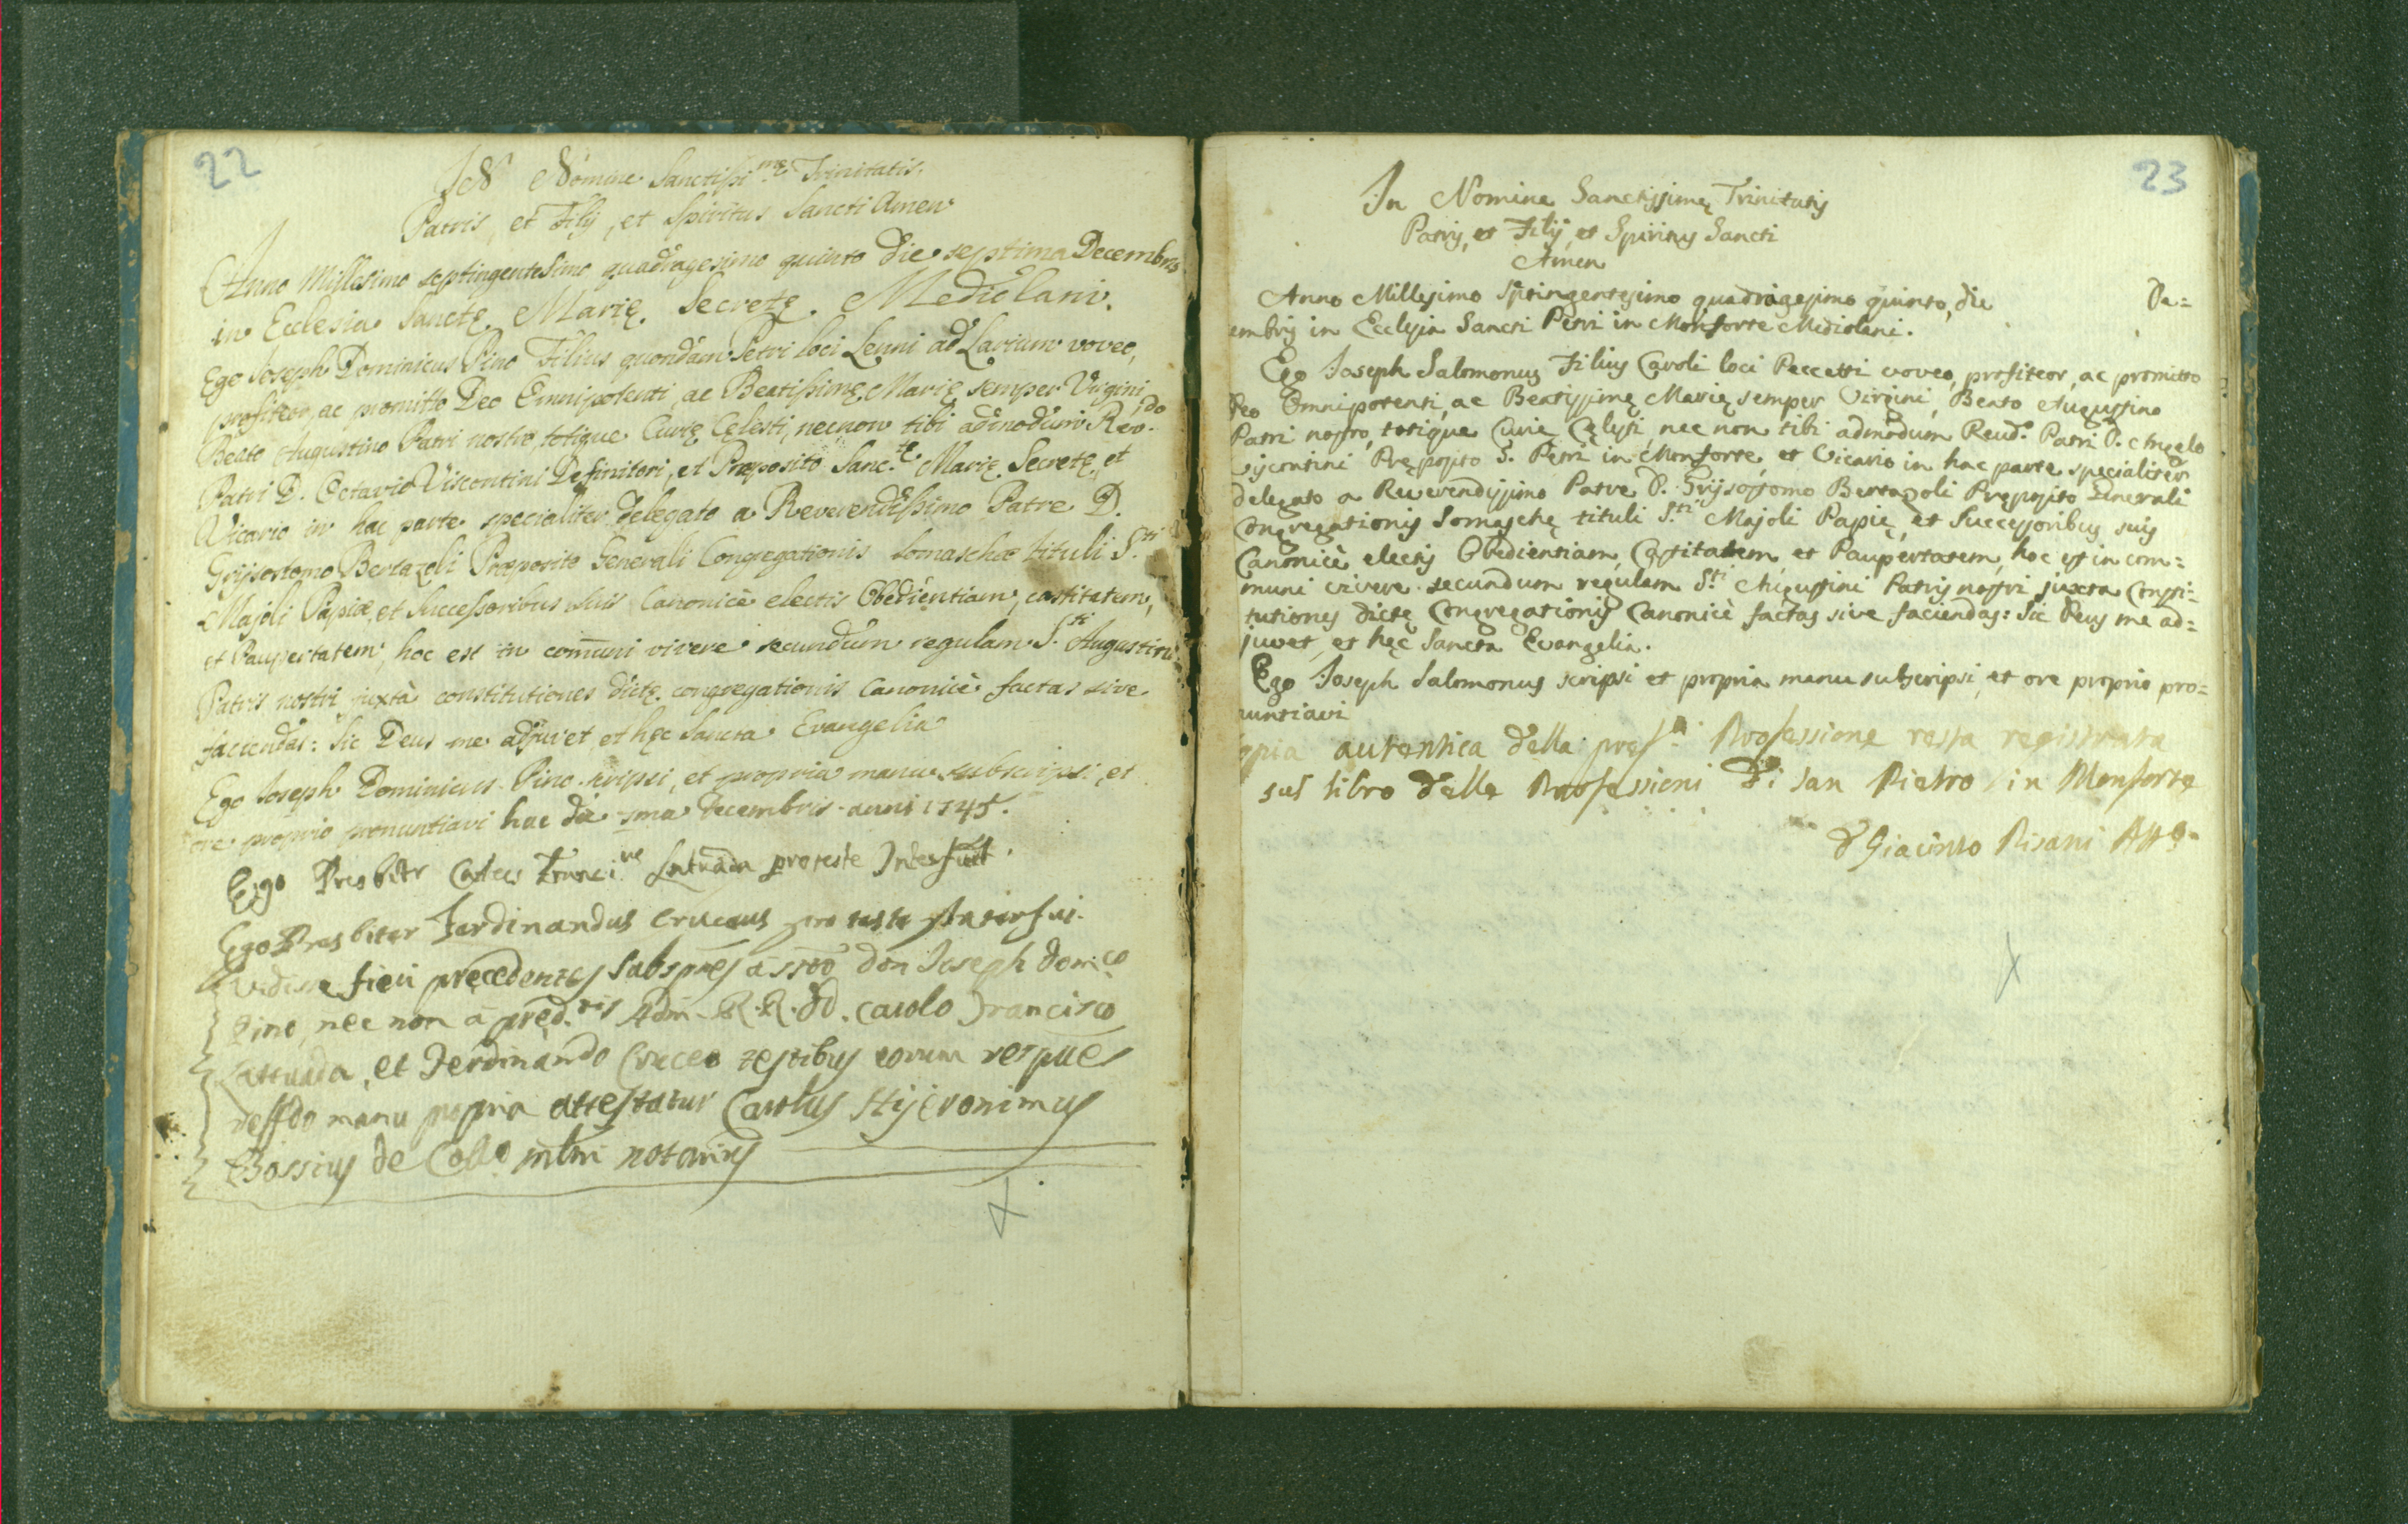 22
IN Nomine Sanctissi.mę Trinitatis.
Patris, et Filij, et Spiritus Sancti Amen
Anno Millesimo septingentesimo quadragesimo quinto die septima Decembris
in Ecclesia Sanctę Marię Secretę Mediolani.
Ego Joseph Dominicus Pino Filius quondam Petri loci Lenni ad Larium voveo,
profiteor, ac promitto Deo Omnipotenti, ac Beatissimę Marię semper Virgini
Beato Augustino Patri nostro, totique Curię Cęlesti, necnon tibi admodum Rev.do
Patri D. Octavio Viscontini Definitori, et Præposito Sanc.tę Marię Secretę, et
Vicario in hac parte specialiter delegato a Reverendissimo Patre D.
Grijsostomo Bertazoli Præposito Generali Congregationis Somaschæ tituli S.ti
Majoli Papiæ, et Successoribus suis Canonicè electis Obedientiam, castitatem,
et Paupertatem, hoc est in com̄uni vivere secundum regulam S.ti Augustini
Patris nostri juxtà constitutiones dictę congregationis Canonicè factas sive
faciendas: Sic Deus me adjuvet et hęc Sancta Evangelia
Ego Joseph Dominicus Pino scripsi, et propria manu subscripsi, et
ore proprio pronuntiavi hac die 7ma Decembris anni 1745.
Ego Presbiter Franci.us pro teste Interfui.
Ego Presbiter Ferdinandus Cruceus pro teste Interfui.
Vidisse fieri pręcedentes don Joseph Domi.co
Pino, nec non a pręd.tis Adm. R.R. DD. Carolo Francisco
Lattuada, et Ferdinando Cruceo testibus eorum
manu propria attestatur Carolus Hijeronimus
Bossius de notarius
23
In Nomine Sanctissimę Trinitatis
Patris, et Filij, et Spiritus Sancti
Amen
Anno Millesimo Septingentesimo quadragesimo quinto, die De=
embris in Ecclesia Sancti Petri in Monforte Mediolani.
Ego Joseph Salomonus Filius Caroli loci Peccetti voveo, profiteor, ac promitto
Deo Omnipotenti, ac Beatissimę Marię semper Virgini, Beato Augustino
Patri nostro, totique Curię Cęlesti, nec non tibi admodum Reud.o Patri D. Angelo
Viscontini Pręposito S. Petri in Monforte, et Vicario in hac parte specialiter
delegato a Reverendissimo Patre D. Grijsostomo Bertazoli Pręposito Generali
Congregationis Somaschę tituli S.ti Majoli Papię, et Successoribus suis
Canonicè electis Obedientiam, Castitatem, et Paupertatem, hoc est in com=
muni vivere secundum regulam S.ti Augustini Patris nostri juxta Consti=
tutiones dictę Congregationis Canonicè factas sive faciendas: Sic Deus me ad=
juvet, et hęc Sancta Evangelia.
Ego Joseph Salomonus scripsi et propria manu subscripsi, et ore proprio pro=
nuntiavi
opia autentica della pres.te Professione resta registrata
sul libro delle Professioni di San Pietro in Monforte
D Giacinto Pisani Att.o